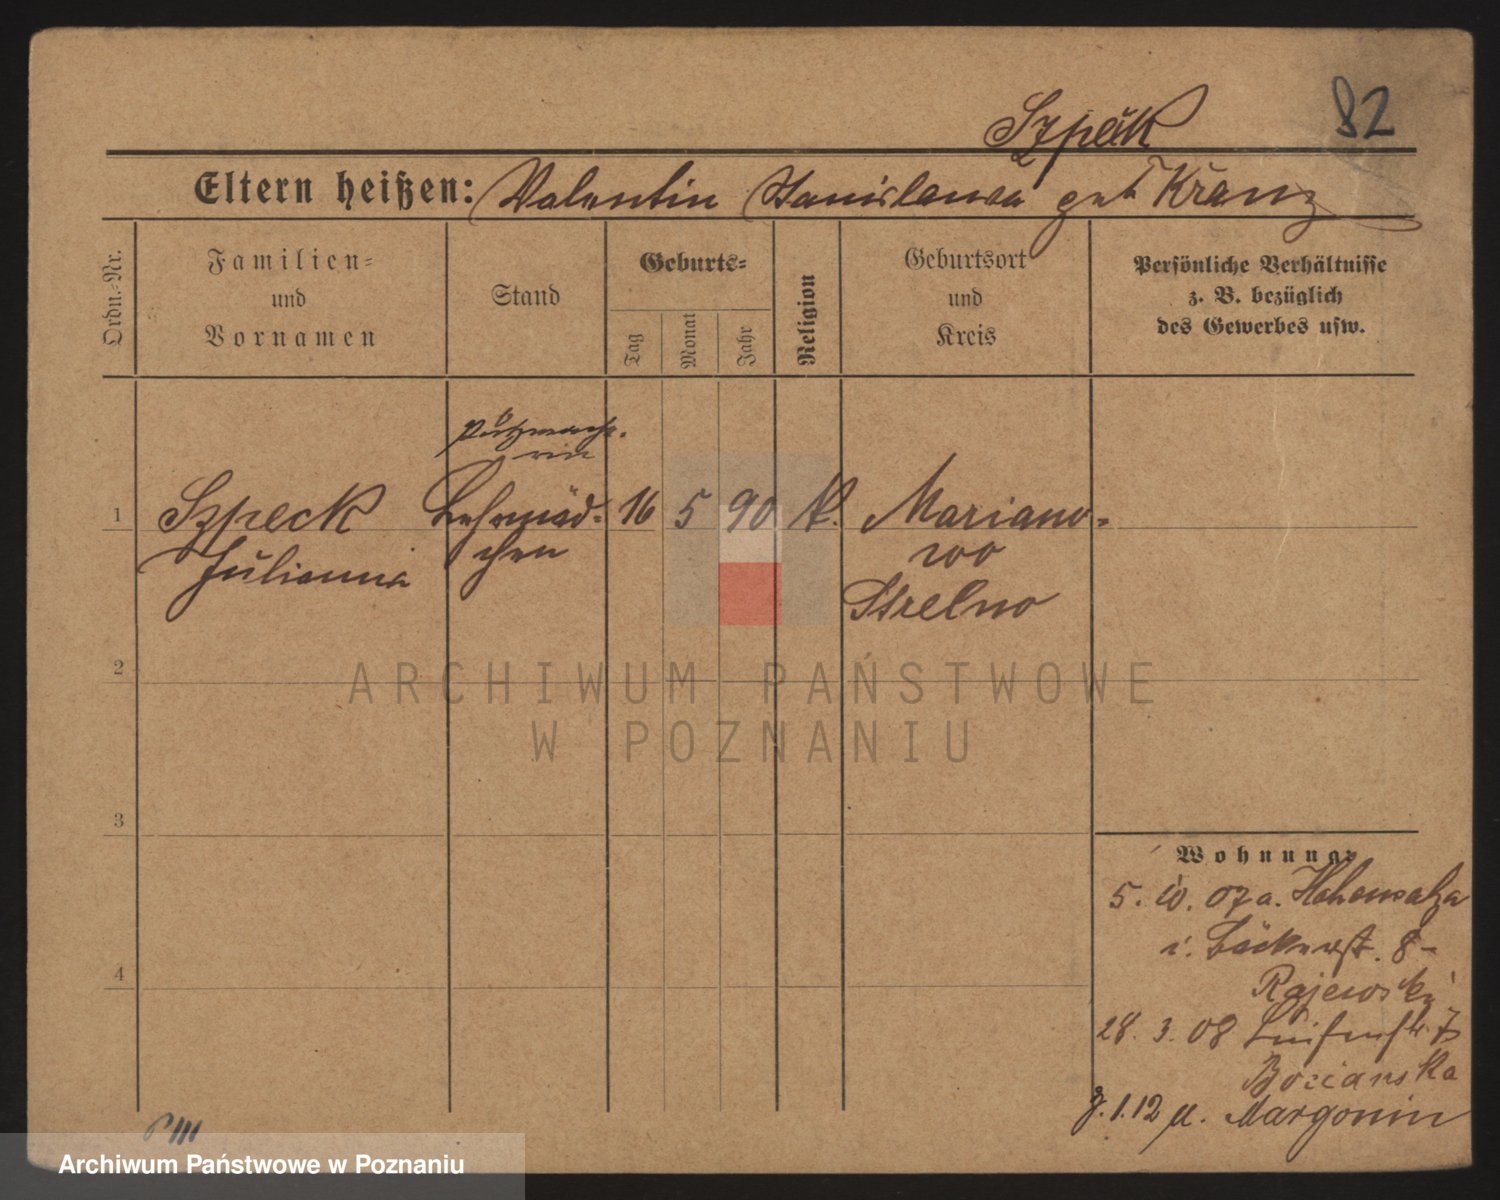 82
Szpek
Eltern heißen: Valentin Stanislawa geb Kranz
Ordn.-Nr.
Familien-
und
Vornamen
Stand
Geburts-
Tag
Monat
Jahr
Religion
Geburtsort
und
Kreis
Persönliche Verhältnisse
z. B. bezüglich
des Gewerbes usw.
Putzmach.
rin
1 Szpeck Lehrmäd- 16 5 90 k. Mariano-
Julianna chen wo
Strelno
2
3
4
Wohnung
5. 10. 07 a. Hohensalza
i. Bäckerst. 8-
Rajewski
28. 3. 08 Luisenstr. 7
Bocianska
1.12 u. Margonin
ARCHIWUM PAŃSTWOWE
W POZNANIU
Archiwum Państwowe w Poznaniu